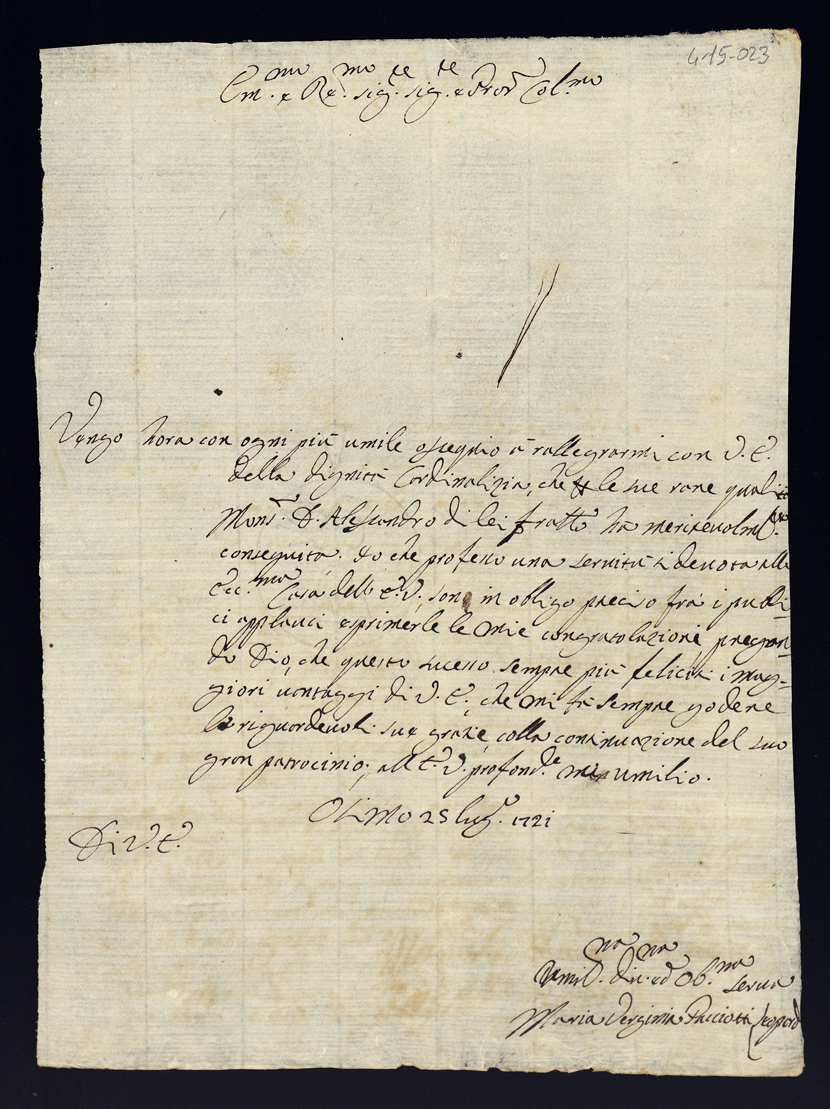 415-023
Em.mo e Re.mo sig.re sig.re e Prōn Col.mo
Vengo hora con ogni più umile ossequio à rallegrarmi con V. E.
della dignità Cardinalizia, che le sue rare qualità
Mons.r D. Alessandro di lei fratto hà meritevolm.te
conseguita. Io che professo una servitù sì devota alla
Ecc.ma Casa dell' E. V., sono in obligo preciso frà i publi-
ci applausi esprimerle le mie congratolazioni pregan-
do Dio, che questo sucesso sempre più feliciti i mag-
giori vantaggi di V. E., che mi fà sempre godere
le riguardevoli sue grazie, colla continuazione del suo
gran patrocinio; all' E. V. profond.te mi umilio.
Osimo 25 lug.o 1721
Di V. E.
Umil.ma div.ma ed Ob.ma serva
Maria Verginia Pacciotti Leopard